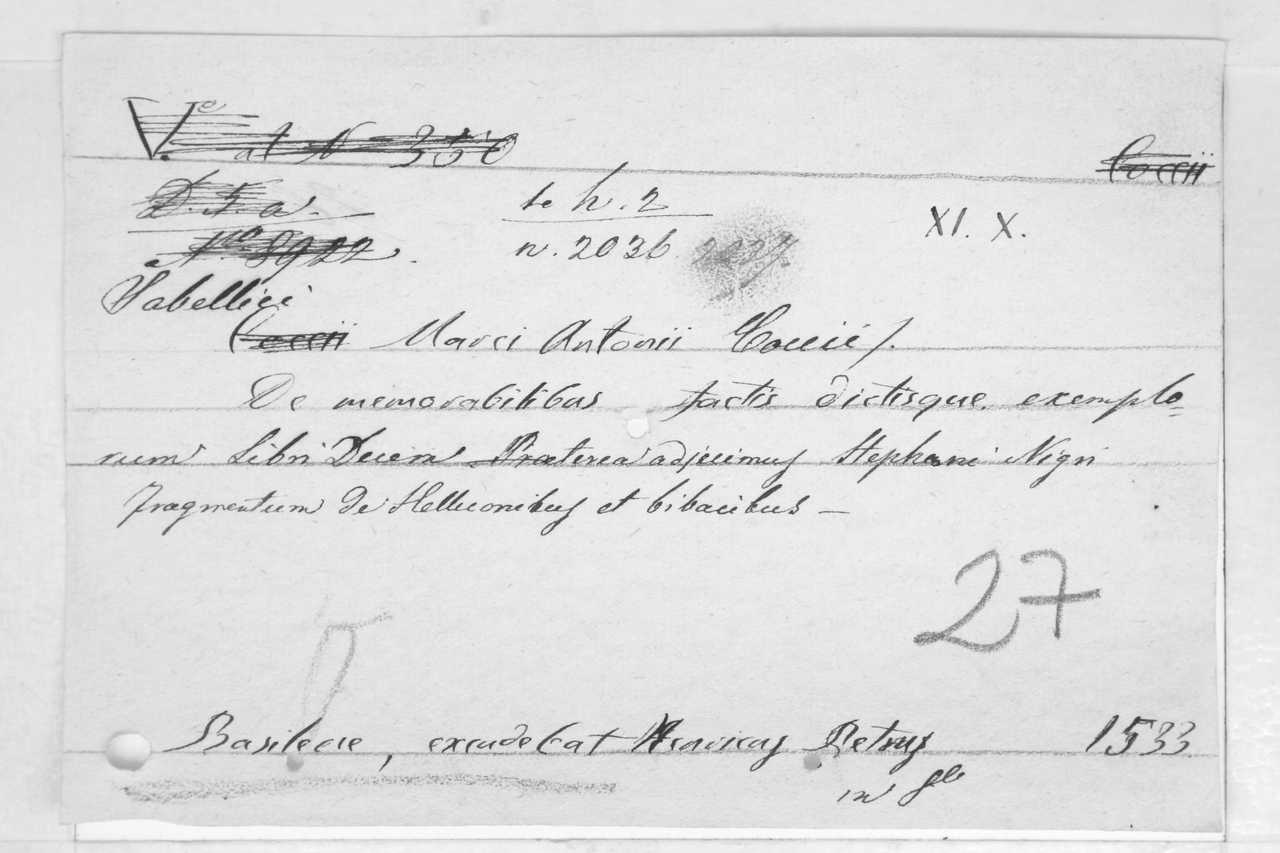 Vᵉ at N 350
Coccii
D. F. a.
te h. 2
XI. X.
Nro 8922.
n. 2036 2037.
Sabellici
Coccii Marci Antonii Coccii /.
De memorabilibus factis dictisque exemplo=
rum Libri Decem Præterea adjecimus Stephani Nigri
fragmentum de Helluonibus et bibacibus —
27
Basileae, excudebat Henricus Petrus 1533
in 8º